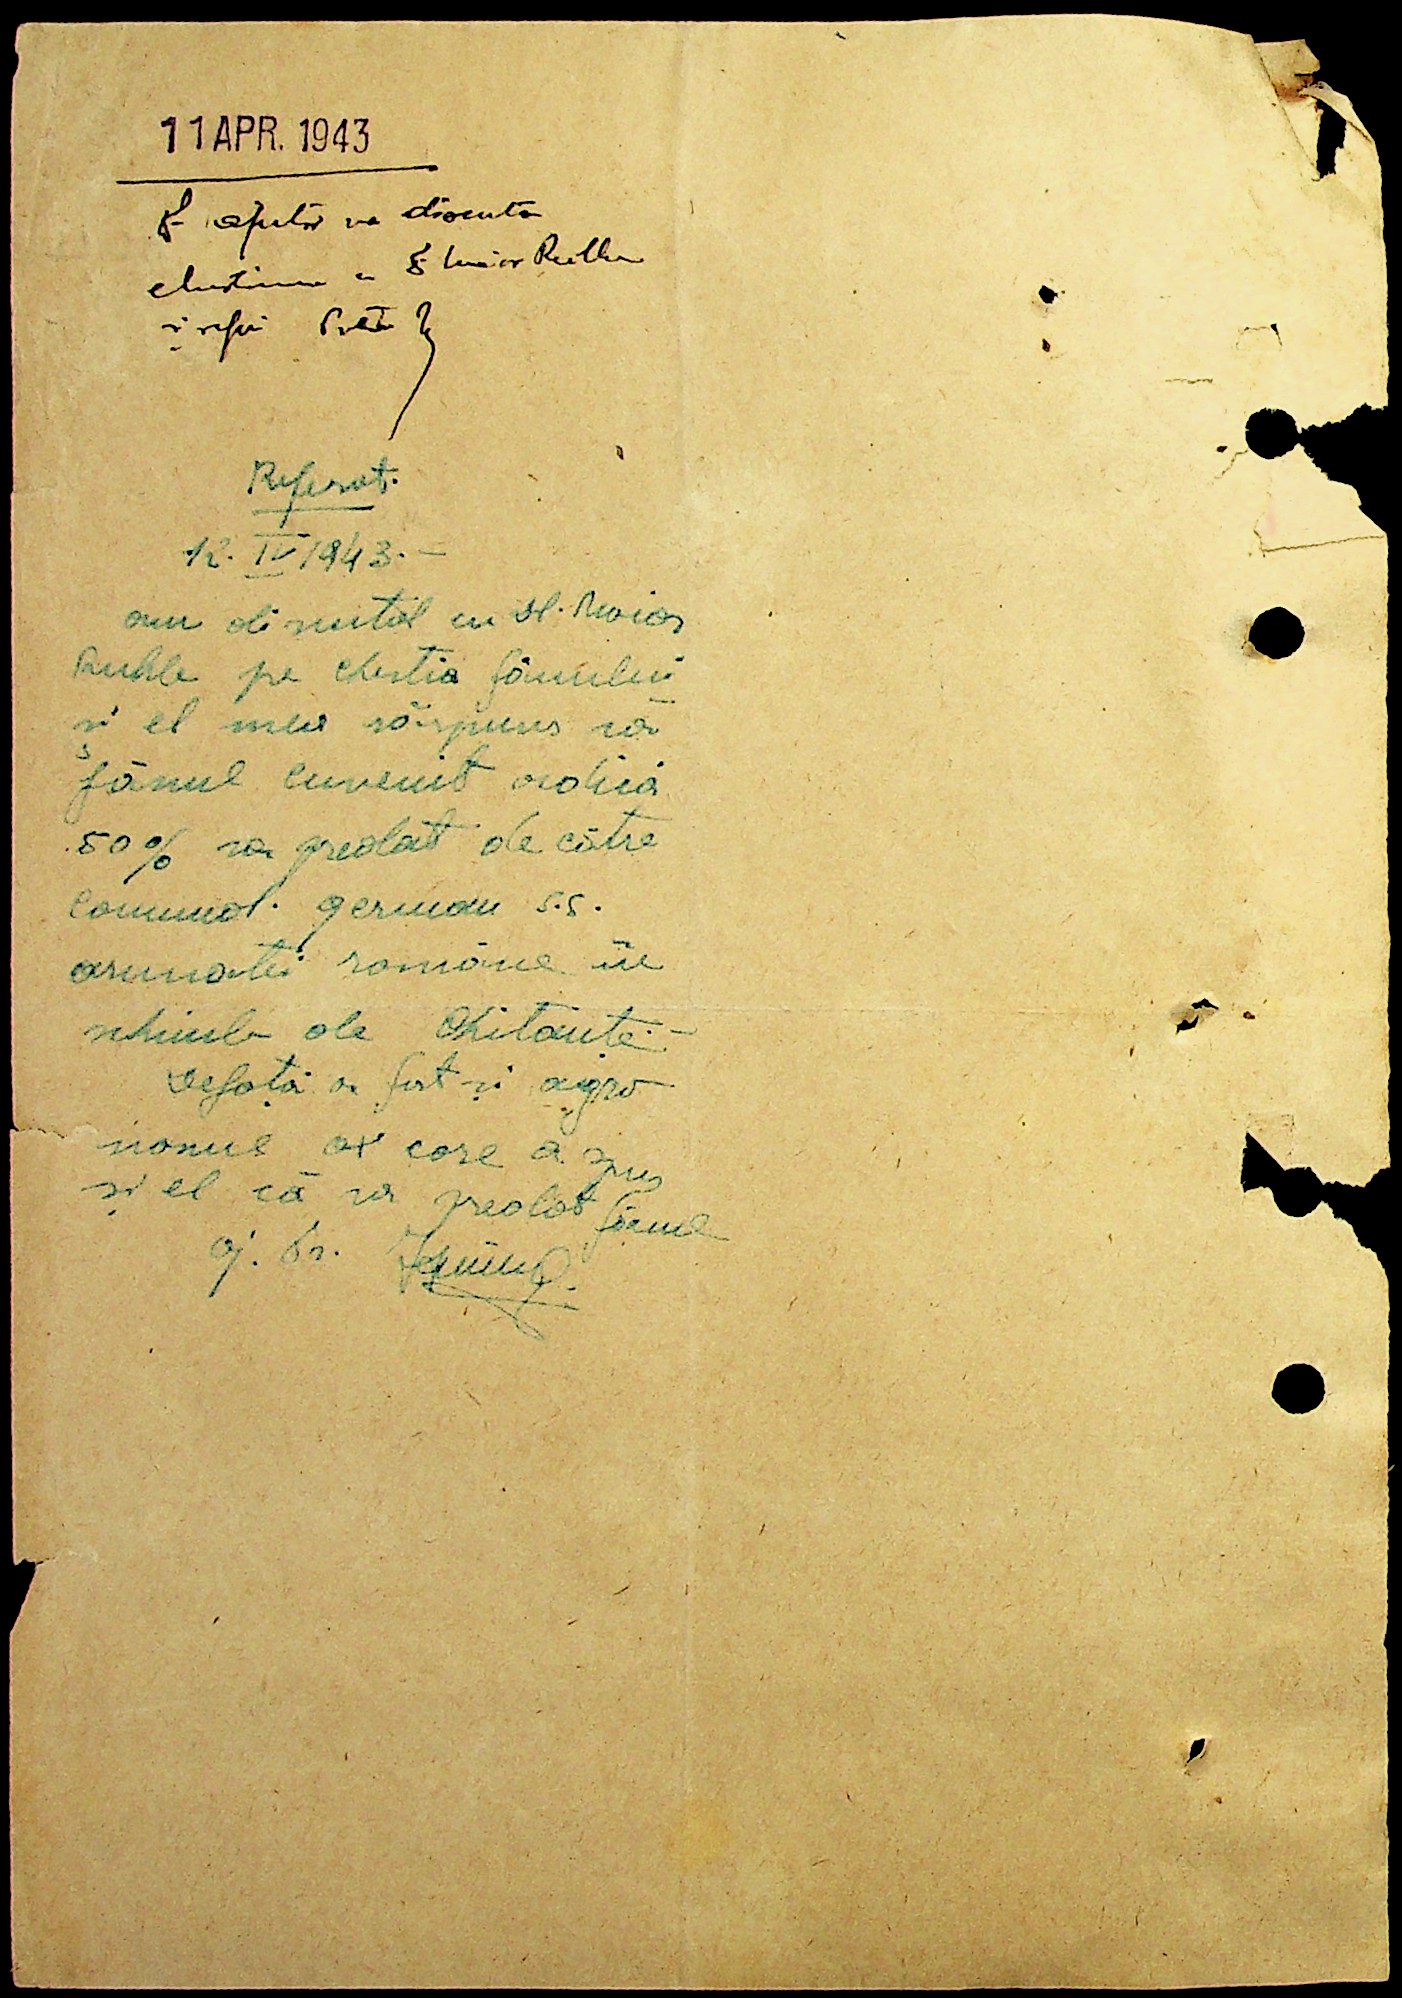 11 APR. 1943
ajutor va discuta
chestiunea cu Maior
și refer
Referat.
12. IV 1943. –
am discutat cu Dl. Maior
Ruhle pe chestia fânului
și el mea răspuns că
fânul cuvenit adică
50% va predat de către
comand. german s.s.
armatei române în
schimb de Chitanțe. –
Defață a fost și agro
nomul care a spus
și el că va predat fânul
aj. Pr.